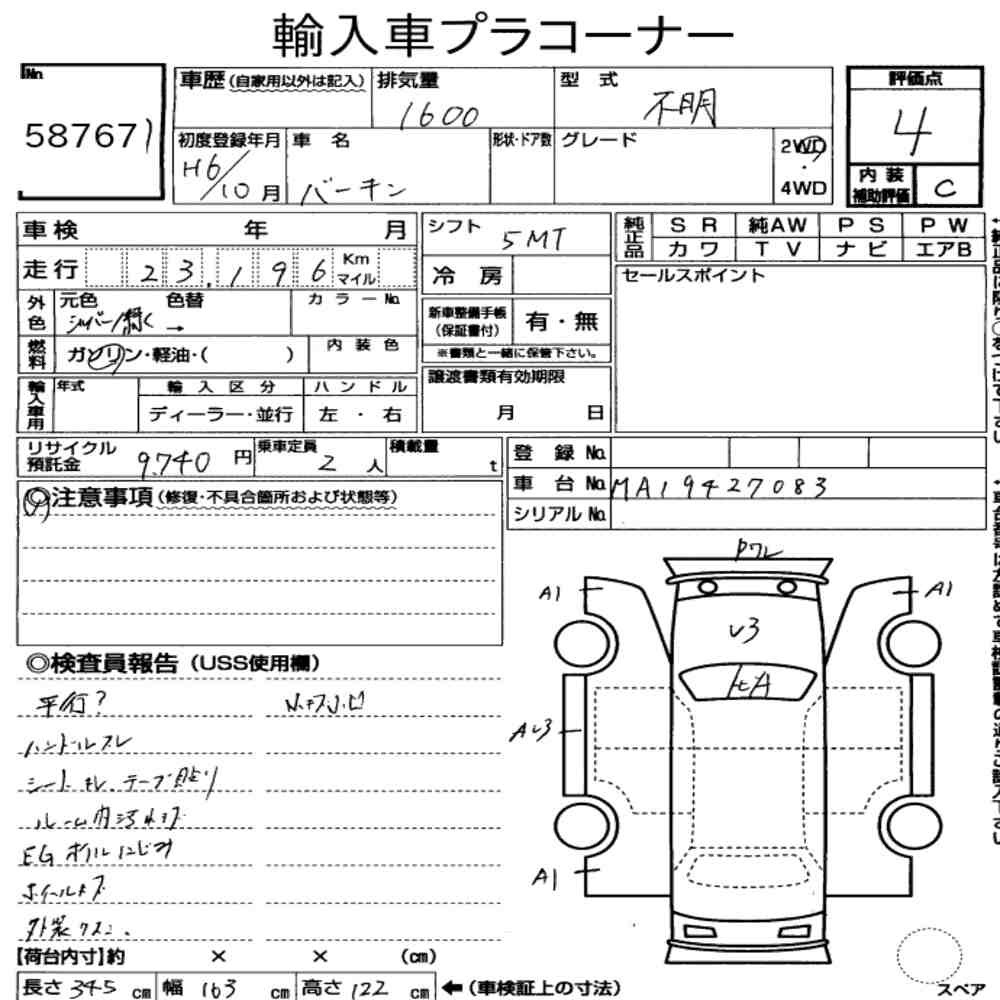 輸入車プラコーナー
No.
587671
車歴(自家用以外は記入)
排気量
1600
型 式
不明
評価点
4
初度登録年月
H6/10月
車 名
バーキン
形状・ドア数
グレード
2WD
4WD
内装補助評価
C
車検 年 月
シフト
5MT
純正品
SR 純AW PS PW
カワ TV ナビ エアB
走行 23,196 Km マイル
冷 房
セールスポイント
外色
元色 色替
シルバー/
→
カラーNo.
新車整備手帳(保証書付)
有・無
※書類と一緒に保管下さい。
燃料
ガソリン・軽油・( )
内装色
譲渡書類有効期限
月 日
輸入車用
年式
輸入区分
ディーラー・並行
ハンドル
左・右
リサイクル預託金
9,740円
乗車定員
2人
積載量
t
登録No.
車台No.
MA19427083
シリアルNo.
◎注意事項(修復・不具合箇所および状態等)
◎検査員報告(USS使用欄)
平行?
ハンドルスレ
シートキレ、テープ貼り
ルーム内汚れキズ
EGオイルにじみ
ホイールキズ
A1
A1
U3
AU3
A1
【荷台内寸】約 × × (cm)
長さ 345 cm 幅 163 cm 高さ 122 cm ←(車検証上の寸法)
スペア